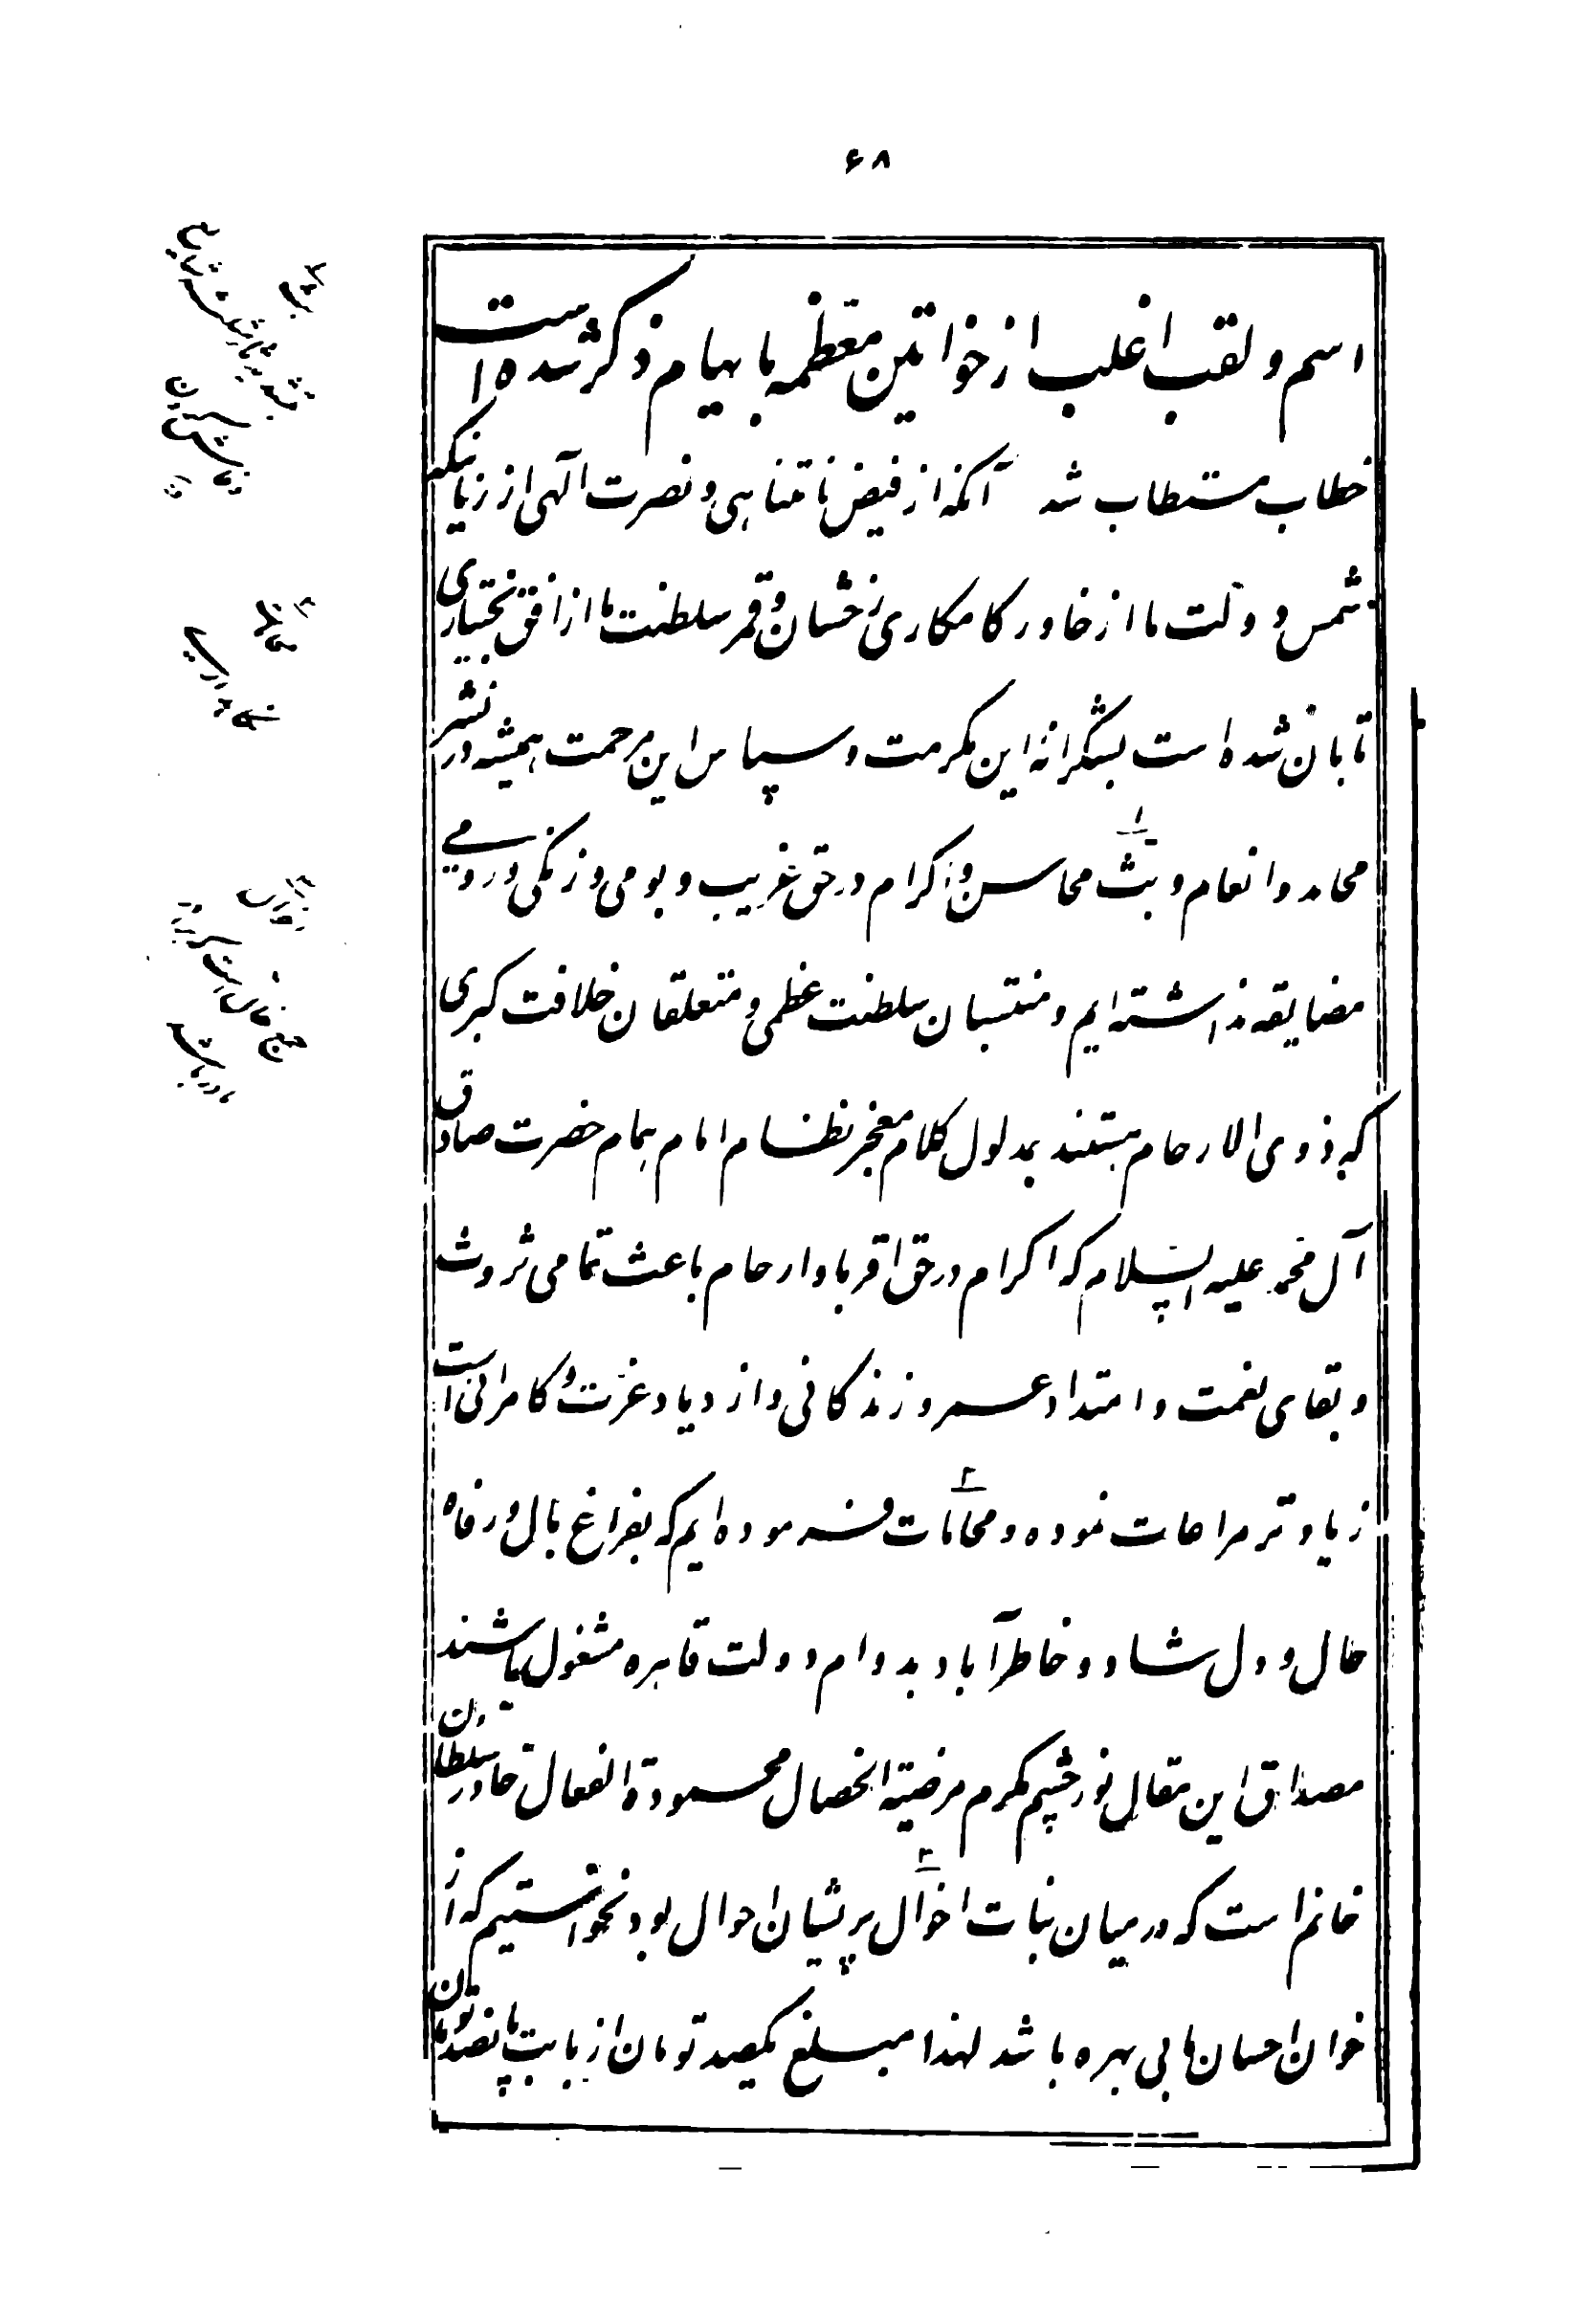 ۶۸
اسم و لقب اغلب از خواتین معظمه بابهام ذکر شده است
خطاب مستطاب شد آنکه از فیض نامتناهی و نصرت الهی از زمانیکه
شمس دولت ما از خاور کامکاری رخشان و قمر سلطنت ما از افق بختیاری
تابان شده است بشکرانهٔ این مکرمت و سپاس این مرحمت همیشه در نشر
محامد و انعام و بثّ محاسن و اکرام در حق غریب و بومی و زنگی و رومی
مضایقه نداشته ایم و منتسبان سلطنت عظمی و متعلقان خلافت کبری
که ذوی الارحام هستند بمدلول کلام معجز نظام امام همام حضرت صادق
آل محمد علیه السلام که اکرام در حق اقربا و ارحام باعث تمامی ثروت
و بقای نعمت و امتداد عمر و زندکانی و ازدیاد عزت و کامرانی است
زیادتر مراعات نموده و محابات فرموده ایم که بفراغ بال و رفاه
حال و دل شاد و خاطر آباد بدوام دولت قاهره مشغول باشند
مصداق این مقال نورچشم مکرم مرضیّة الخصال محمودة الفعال سلطان
خانم است که در میان بنات اخوال پریشان احوال بود نخواستیم که از
خوان احسان ما بی بهره باشد لهذا مبلغ یکصد تومان از بابت پانصد تومان